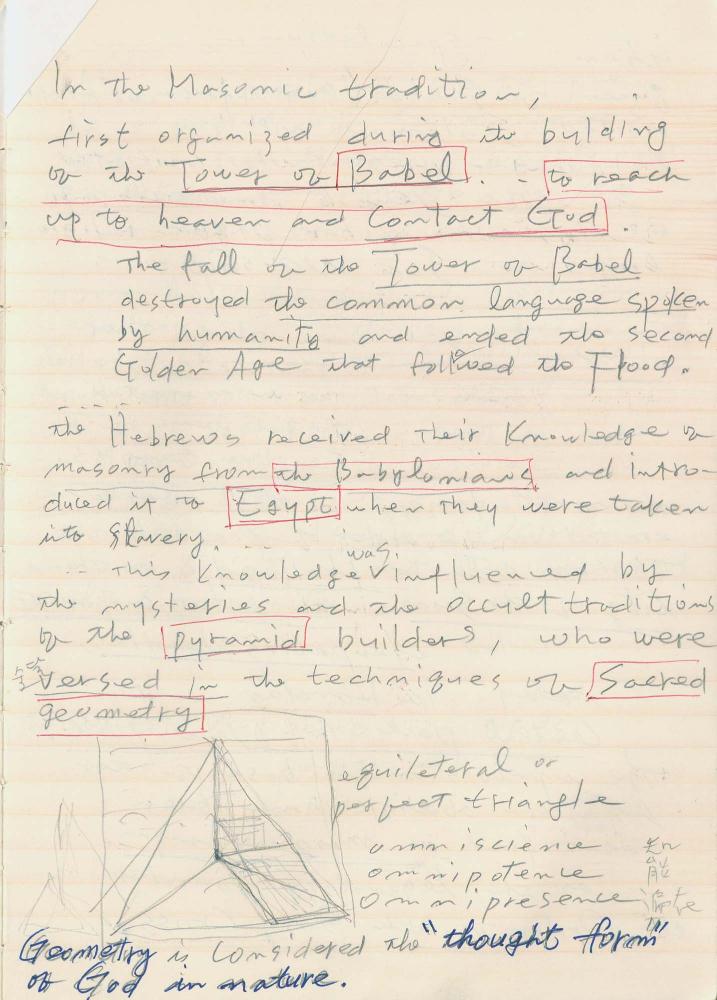 In the Masonic tradition,
first organized during the building
of the Tower of Babel. -- to reach
up to heaven and contact God.
The fall of the Tower of Babel
destroyed the common language spoken
by humanity and ended the second
Golden Age that followed the Flood.
the Hebrews received their knowledge of
masonry from the Babylonians and intro-
duced it to Egypt when they were taken
into slavery. ---
was
-- This knowledge ∨ influenced by
the mysteries and the occult traditions
of the pyramid builders, who were
versed in the techniques of Sacred
geometry
equileteral or
perfect triangle
omniscience 知
omnipotence 能
omnipresence 遍在
Geometry is considered the "thought form"
of God in nature.